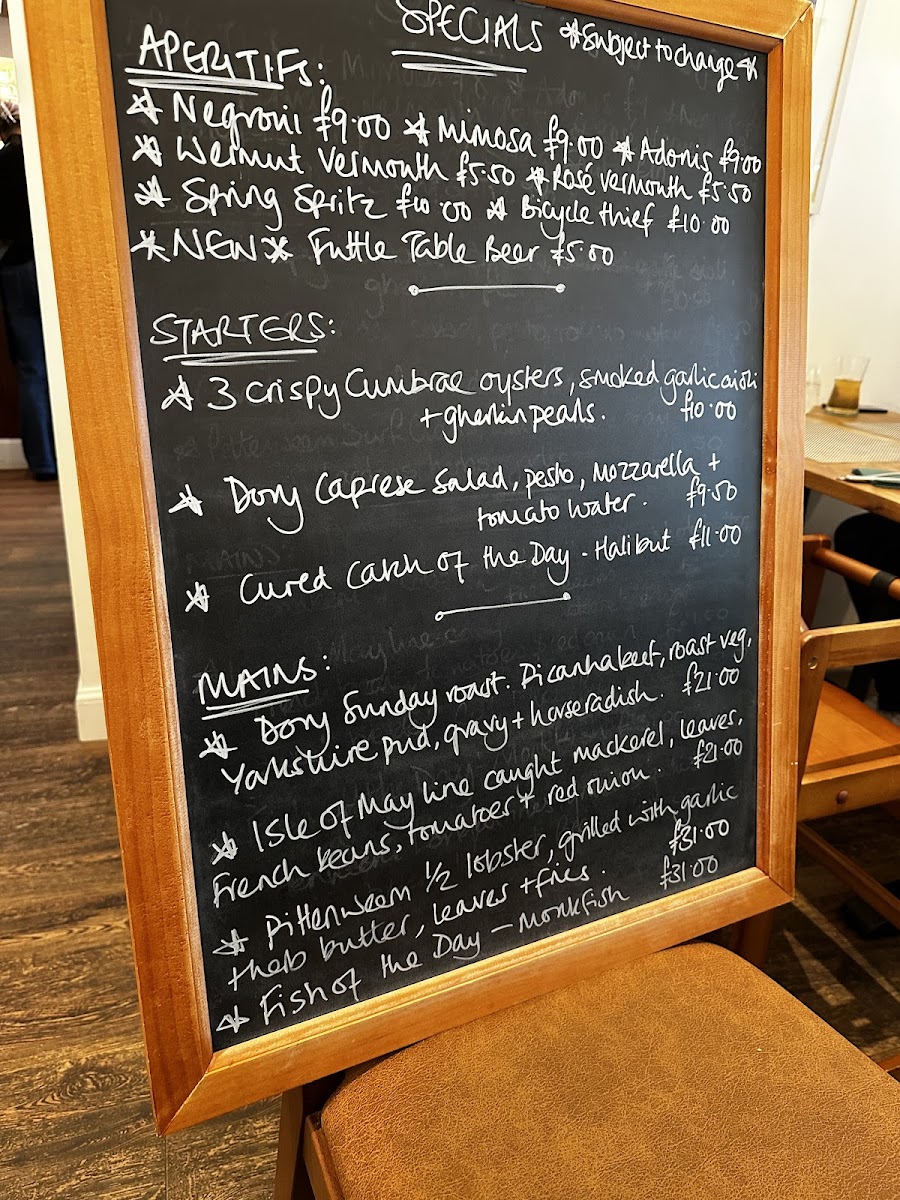 SPECIALS *Subject to change*
APERITIFS:
* Negroni £9.00 * Mimosa £9.00 * Adonis £9.00
* Wermut Vermouth £5.50 * Rosé Vermouth £5.50
* Spring Spritz £10.00 * Bicycle thief £10.00
*NEW* Futtle Table Beer £5.00
STARTERS:
* 3 Crispy Cumbrae oysters, smoked garlic aioli
+ gherkin pearls. £10.00
* Dory Caprese Salad, pesto, mozzarella +
tomato water. £9.50
* Cured Catch of the Day - Halibut £11.00
MAINS:
* Dory Sunday roast. Picanha beef, roast veg,
Yorkshire pud, gravy + horseradish. £21.00
* Isle of May line caught mackerel, leaves,
French beans, tomatoes + red onion. £21.00
* Pittenweem 1/2 lobster, grilled with garlic
+ herb butter, leaves + fries. £31.00
* Fish of the Day - Monkfish £31.00